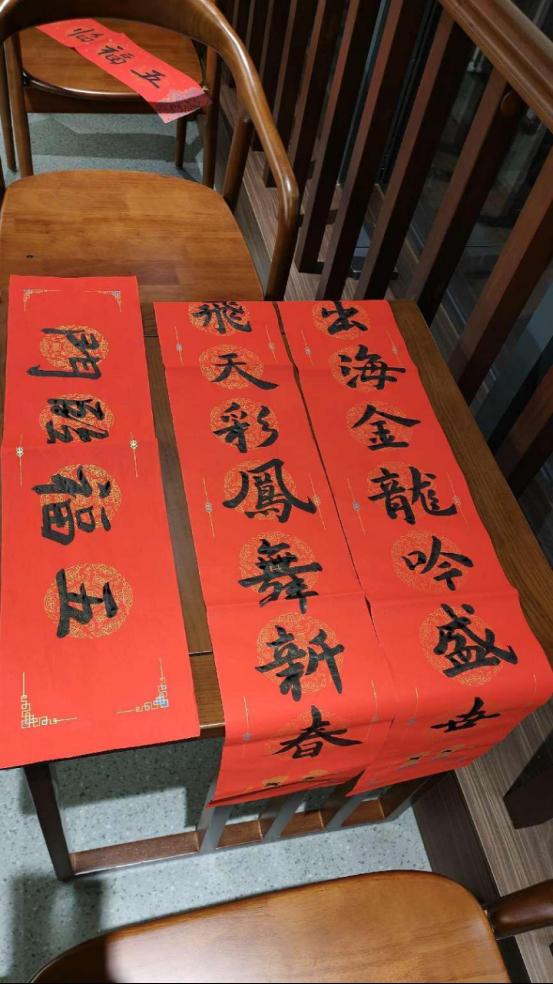 出海金龍吟盛世
飛天彩鳳舞新春
五福臨門
五福臨